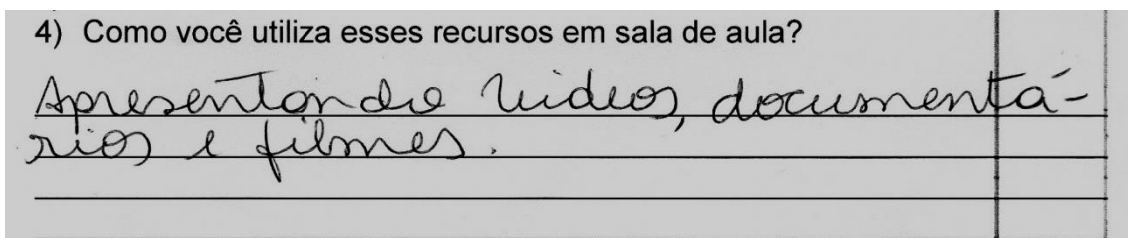 4) Como você utiliza esses recursos em sala de aula?
Apresentando vídeos, documentá-
rios e filmes.